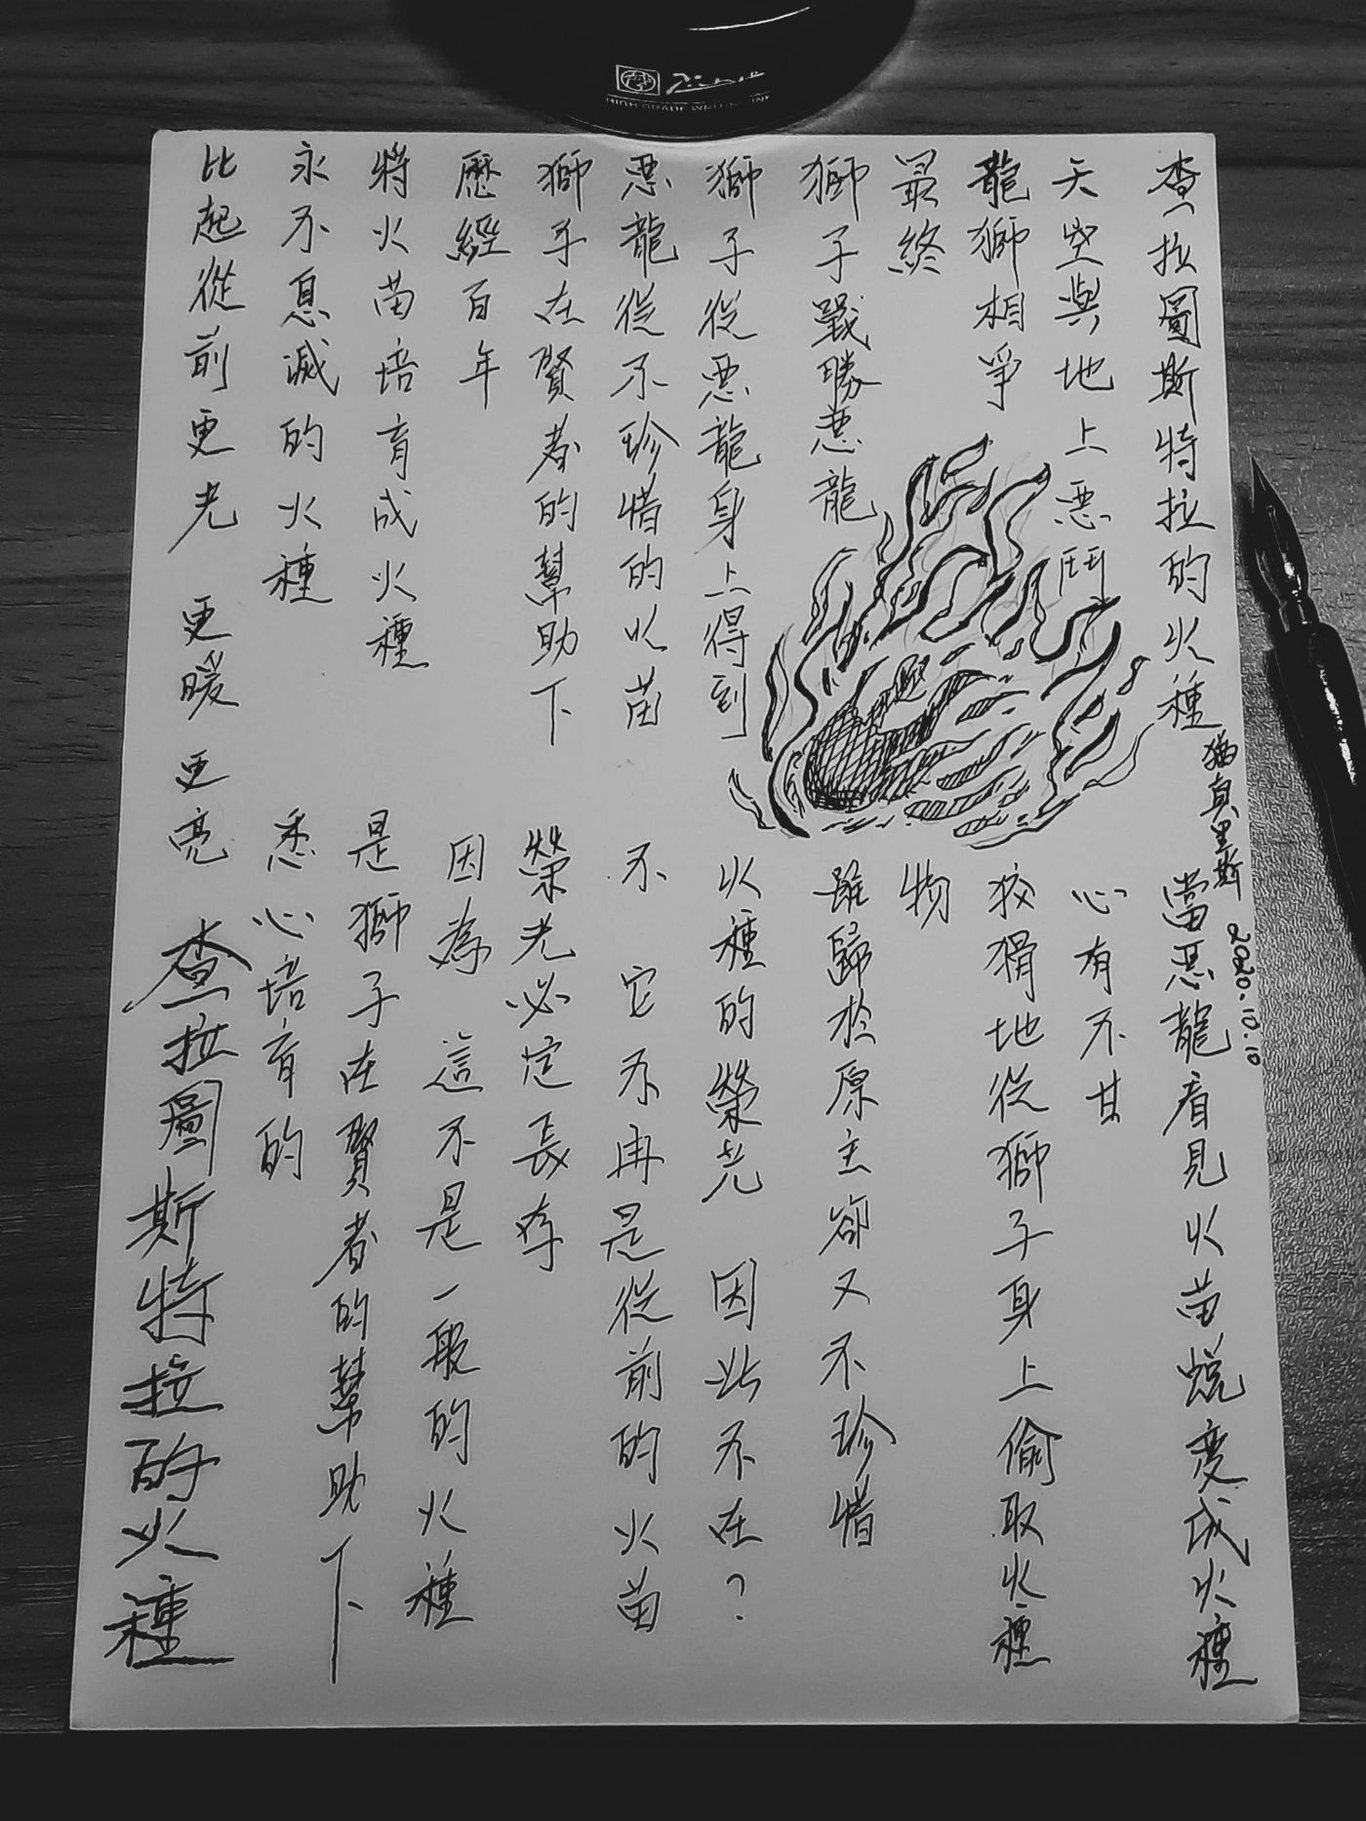 查拉圖斯特拉的火種
天空與地上惡鬥
龍獅相爭
最終
獅子戰勝惡龍
獅子從惡龍身上得到
惡龍從不珍惜的火苗
獅子在賢者的幫助下
歷經百年
將火苗培育成火種
永不息滅的火種
比起從前更光 更暖 更亮
真里斯 2020.10.10
當惡龍看見火苗蛻變成火種
心有不甘
狡猾地從獅子身上偷取火種
物
雖歸於原主卻又不珍惜
火種的榮光 因此不在？
不 它不再是從前的火苗
榮光必定長存
因為 這不是一般的火種
是獅子在賢者的幫助下
悉心培育的
查拉圖斯特拉的火種
HIGH GRADE WRITING INK